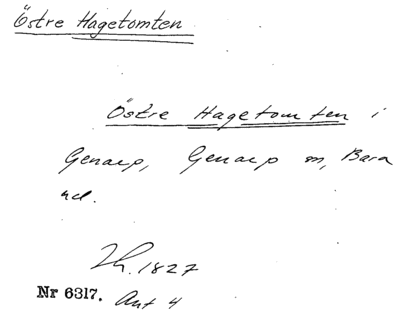 Östre Hagetomten
Östre Hagetomten i
Genarp, Genarp sn, Bara
hd.
Lh. 1827
Nr 6317. Avt 4